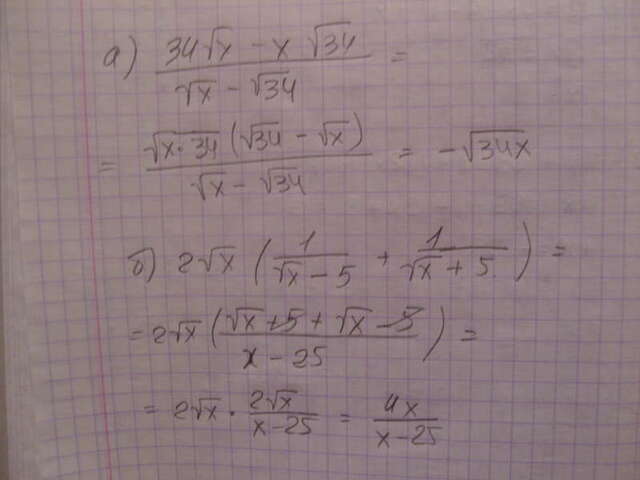 а) (34√x - x √34)/(√x - √34) =
= (√(x·34) (√34 - √x))/(√x - √34) = -√(34x)
б) 2√x (1/(√x - 5) + 1/(√x + 5)) =
= 2√x ((√x + 5 + √x - 5)/(x - 25)) =
= 2√x · (2√x)/(x - 25) = (4x)/(x - 25)